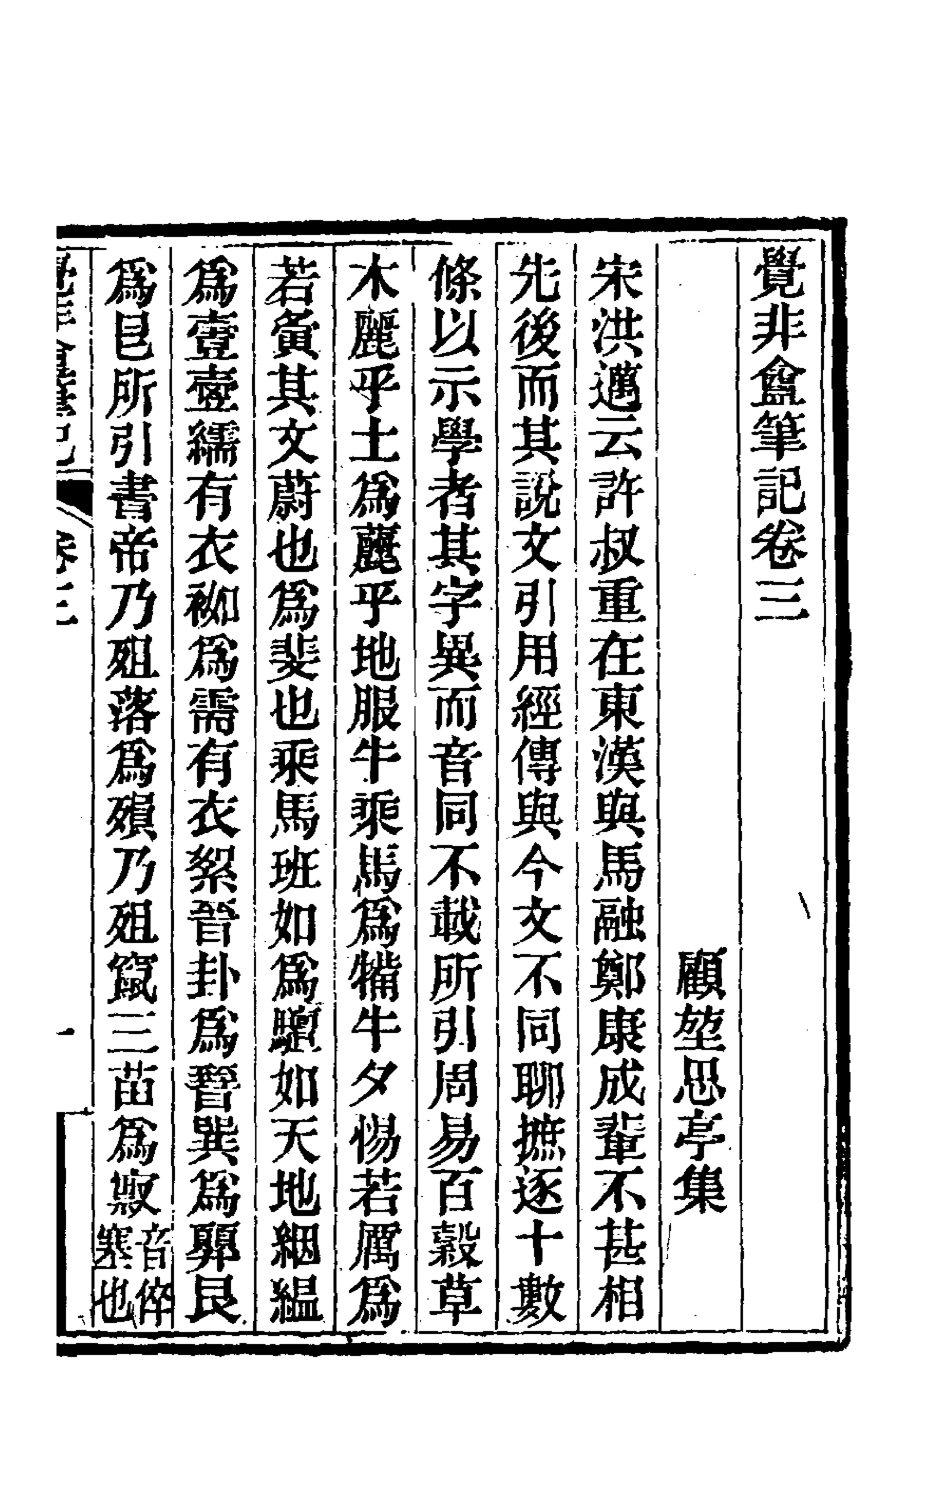 覺非盦筆記卷三
顧堃思亭集
宋洪邁云許叔重在東漢與馬融鄭康成輩不甚相
先後而其說文引用經傳與今文不同聊摭逐十數
條以示學者其字異而音同不載所引周易百穀草
木麗乎土為麗乎地服牛乘馬為犕牛夕惕若厲為
若夤其文蔚也為斐也乘馬班如為驙如天地絪縕
為壹壺繻有衣袽為需有衣絮晉卦為㬜巽為顨艮
為皀所引書帝乃殂落為殞乃殂竄三苗為㕞音倅塞也
覺非盦筆記 卷三 一